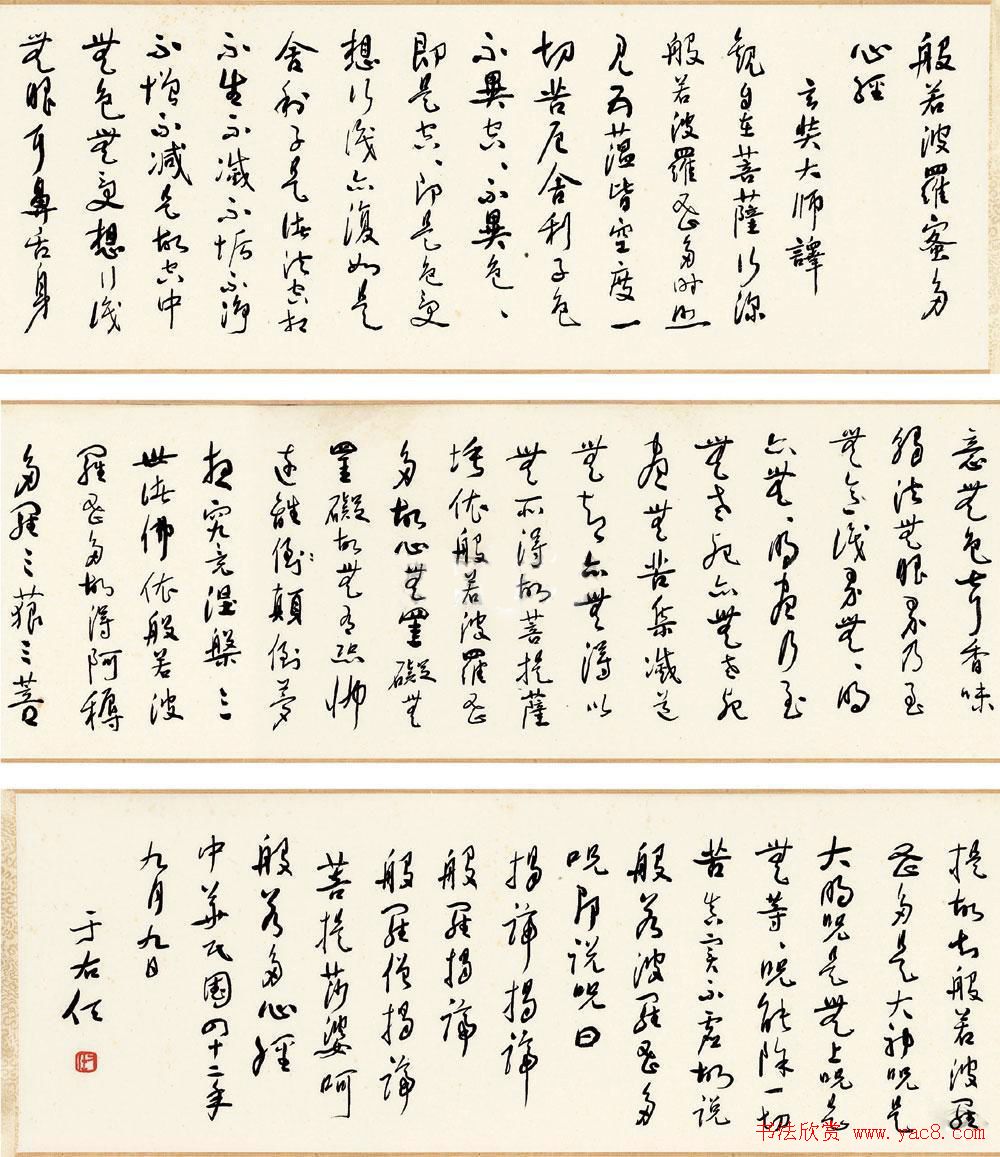 般若波羅蜜多
心經
玄奘大師譯
觀自在菩薩行深
般若波羅蜜多時照
見五蘊皆空度一
切苦厄舍利子色
不異空、不異色、
即是空、即是色受
想行識亦復如是
舍利子是諸法空相
不生不滅不垢不淨
不增不減是故空中
無色無受想行識
無眼耳鼻舌身
意無色聲香味
觸法無眼界乃至
無意識界無、明
亦無、明盡乃至
無老死亦無老死
盡無苦集滅道
無智亦無得以
無所得故菩提薩
埵依般若波羅蜜
多故心無罣礙無
罣礙故無有恐怖
遠離倒顛倒夢
想究竟涅槃三
世諸佛依般若波
羅蜜多故得阿耨
多羅三藐三菩
提故知般若波羅
蜜多是大神咒是
大明咒是無上咒是
無等、咒能除一切
苦真實不虛故說
般若波羅蜜多
咒即説咒曰
揭諦揭諦
般羅揭諦
般羅僧揭諦
菩提莎婆呵
般若多心經
中華民國四十二年
九月九日
于右任
书法欣赏 www.yac8.com